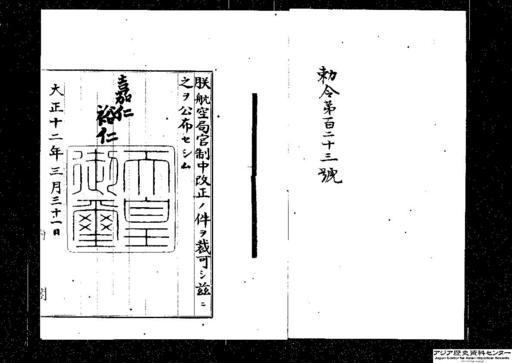 勅令第百二十三號
朕航空局官制中改正ノ件ヲ裁可シ茲ニ
之ヲ公布セシム
嘉仁
裕仁
天皇
御璽
大正十二年三月三十一日
アジア歴史資料センター
Japan Center for Asian Historical Records